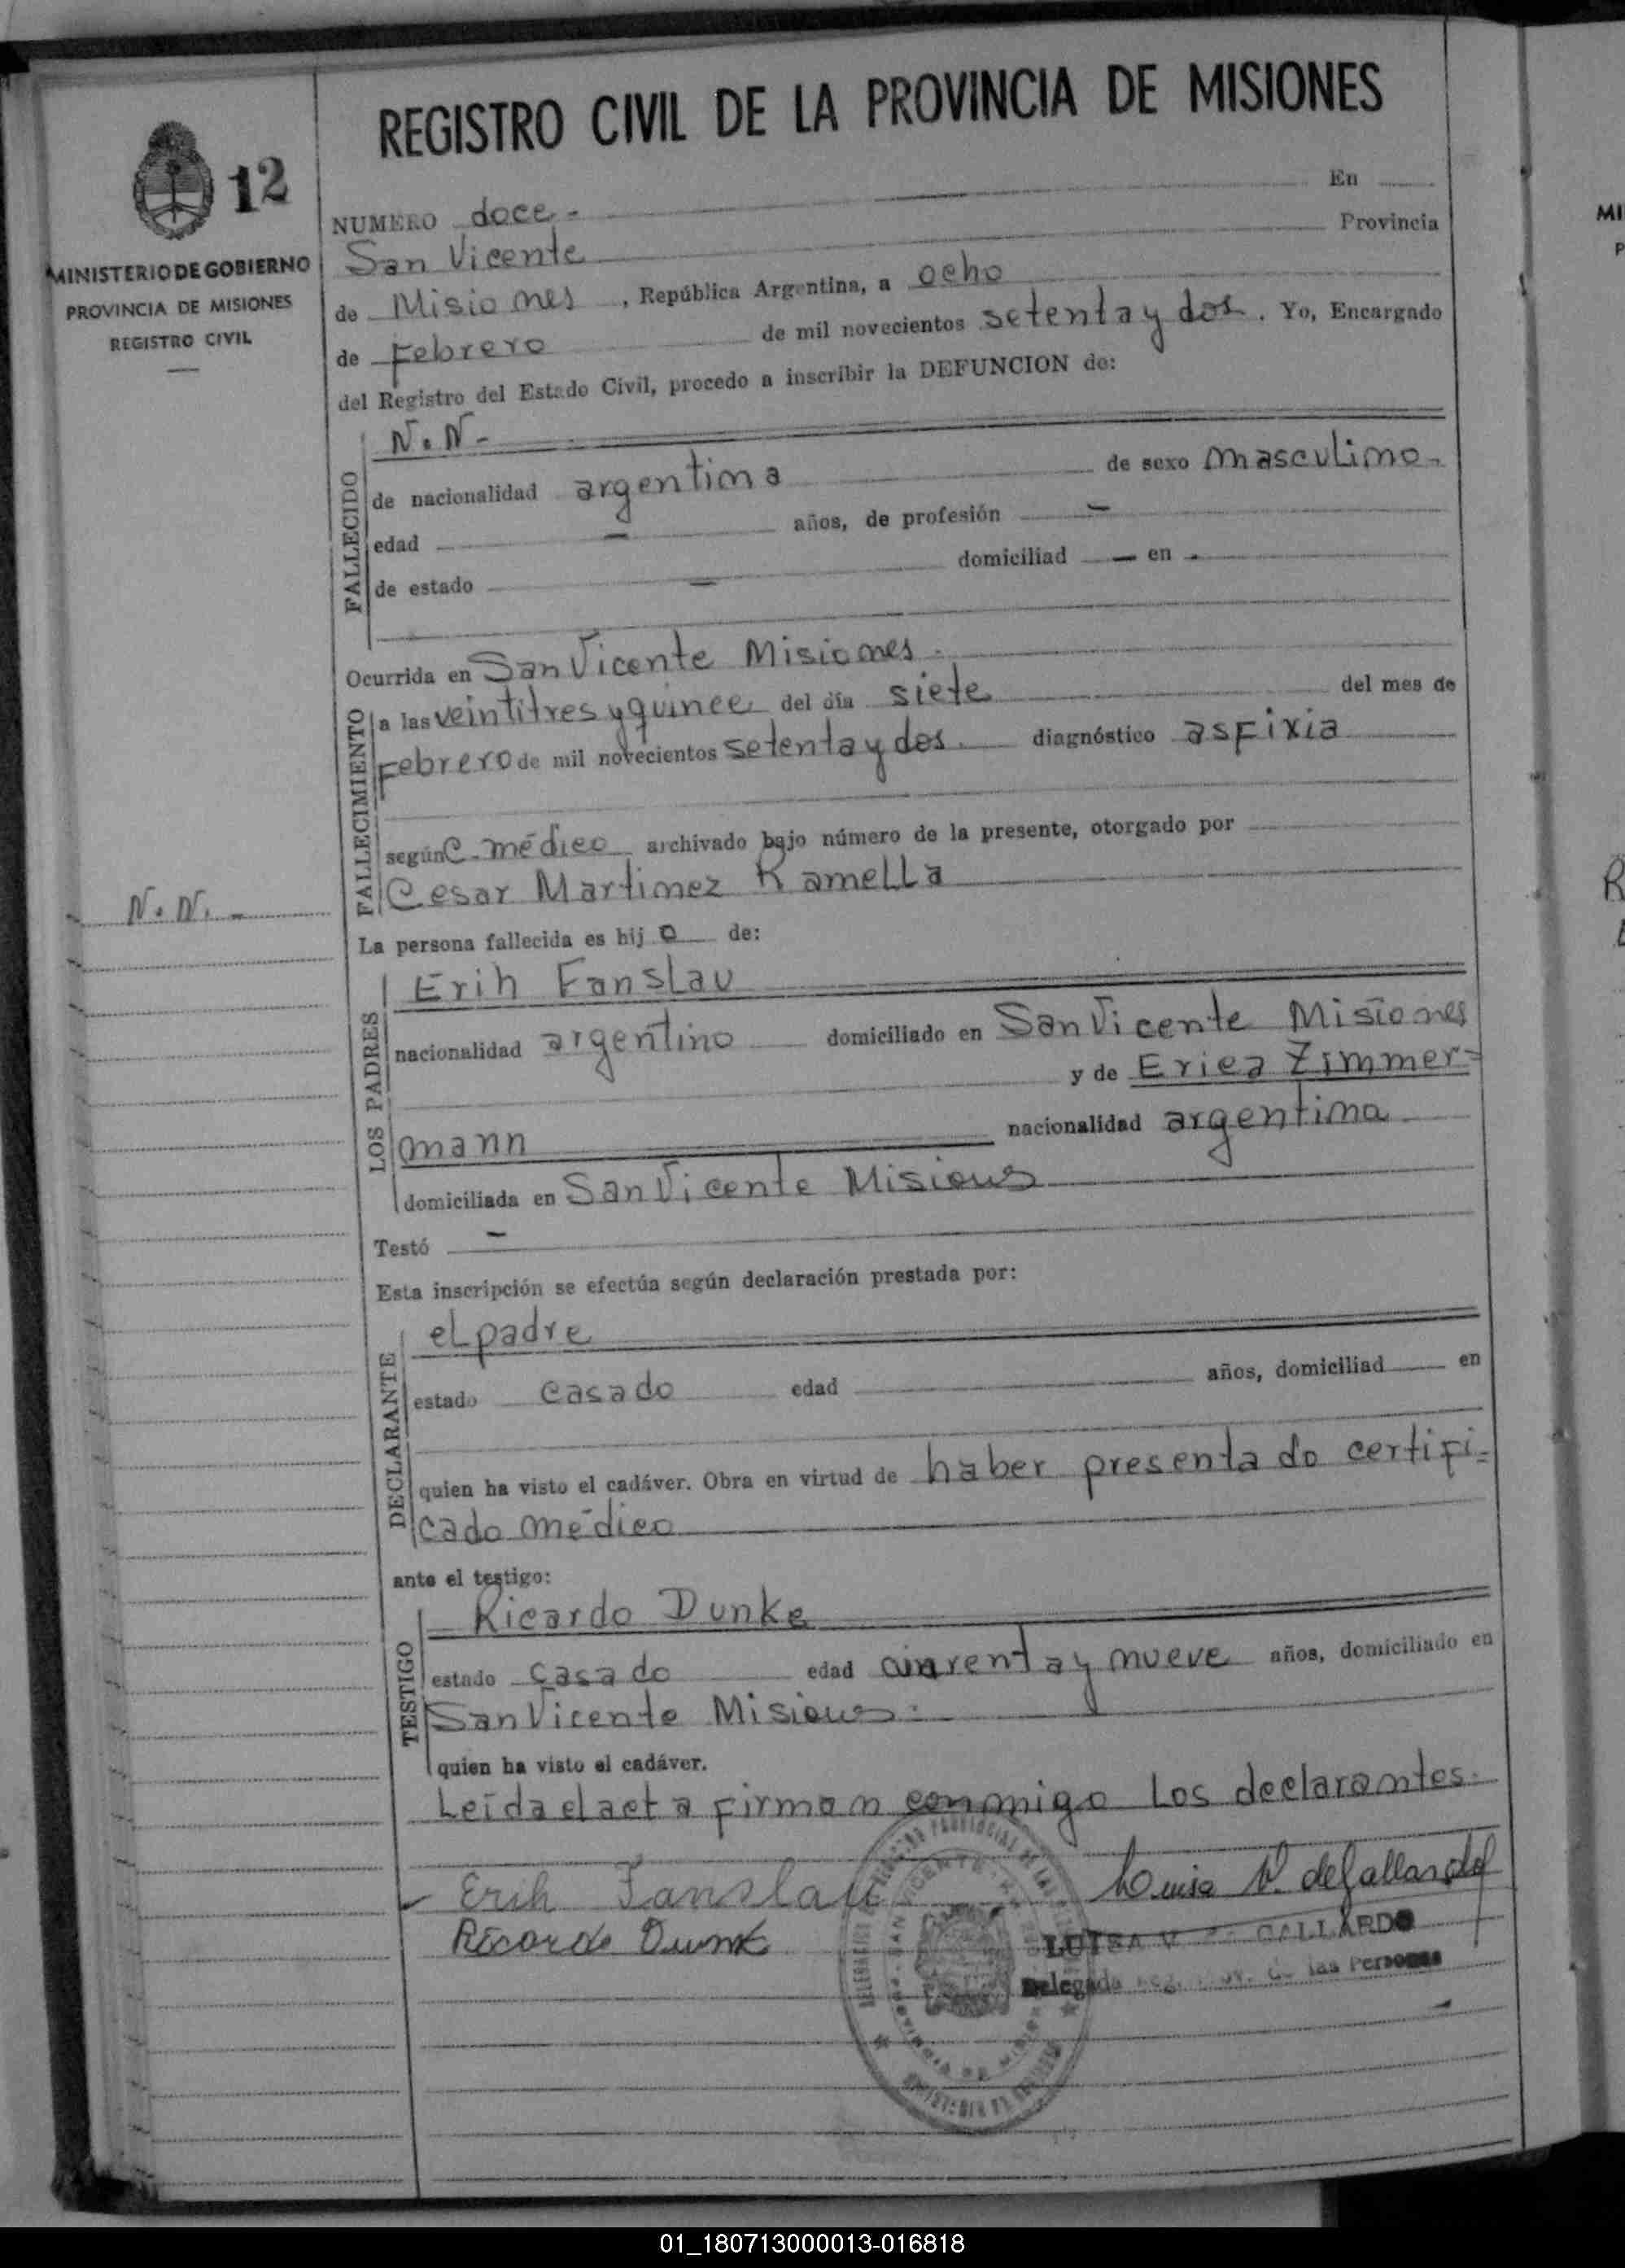 REGISTRO CIVIL DE LA PROVINCIA DE MISIONES
12
MINISTERIO DE GOBIERNO
PROVINCIA DE MISIONES
REGISTRO CIVIL
NUMERO doce - En
San Vicente Provincia
de Misiones, República Argentina, a ocho
de Febrero de mil novecientos setenta y dos. Yo, Encargado
del Registro del Estado Civil, procedo a inscribir la DEFUNCION de:
FALLECIDO
N. N -
de nacionalidad argentina de sexo masculino -
edad - años, de profesión -
de estado - domiciliad - en -
Ocurrida en San Vicente Misiones.
FALLECIMIENTO
a las veintitres y quince del día siete del mes de
Febrero de mil novecientos setenta y dos. diagnóstico asfixia
según C. médico archivado bajo número de la presente, otorgado por
Cesar Martinez Ramella
N. N. -
La persona fallecida es hij o de:
LOS PADRES
Erih Fanslau
nacionalidad argentino domiciliado en San Vicente Misiones
y de Erica Zimmer=
mann nacionalidad argentina
domiciliada en San Vicente Misiones
Testó -
Esta inscripción se efectúa según declaración prestada por:
DECLARANTE
el padre
estado casado edad años, domiciliad en
quien ha visto el cadáver. Obra en virtud de haber presentado certifi=
cado médico
ante el testigo:
TESTIGO
Ricardo Dunke
estado casado edad cuarenta y nueve años, domiciliado en
San Vicente Misiones.
quien ha visto el cadáver.
Leída el acta firman conmigo los declarantes.
Erih Fanslau
Luisa V. de Gallardo
Ricardo Dunk
LUISA V. DE GALLARDO
Delegada Reg. Prov. de las Personas
MI
P
R
01_180713000013-016818